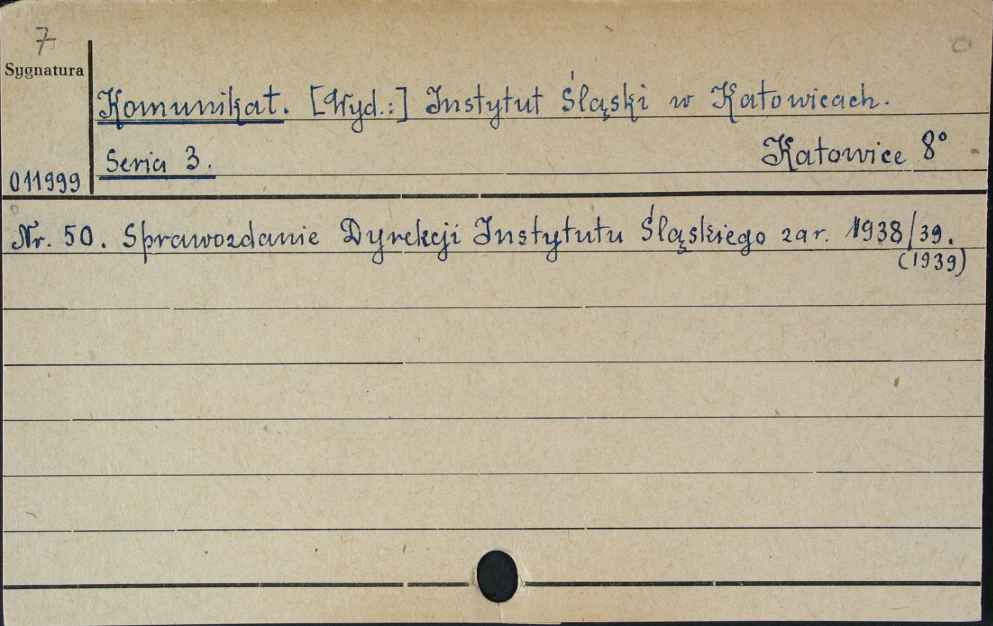 7
Sygnatura
Komunikat. [Wyd.:] Instytut Śląski w Katowicach.
Seria 3. Katowice 8°
011999
Nr. 50. Sprawozdanie Dyrekcji Instytutu Śląskiego za r. 1938/39.
(1939)